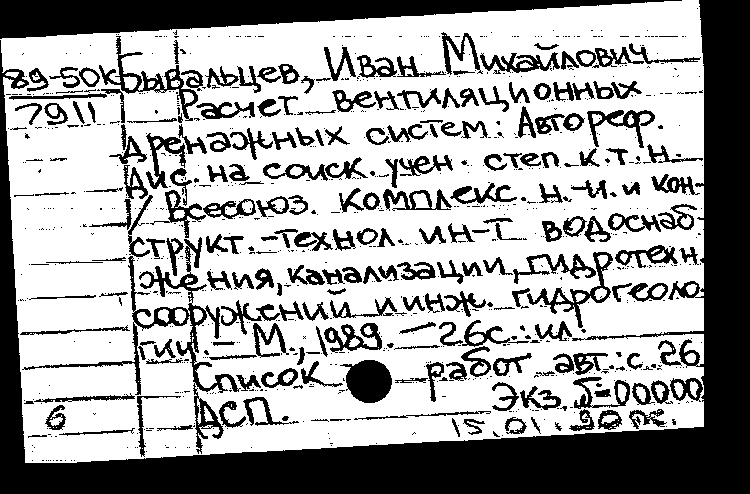 89-50к Бывальцев, Иван Михайлович
7911 Расчет вентиляционных
дренажных систем: Автореф.
дис. на соиск. учен. степ. к.т.н.
/ Всесоюз. комплекс. н.-и. и кон-
структ.-технол. ин-т водоснаб-
жения, канализации, гидротехн.
сооружений и инж. гидрогеоло-
гии. - М., 1989. - 26с.: ил.
Список работ авт.: с. 26
6 ДСП. Экз. б=00000
15.01.90